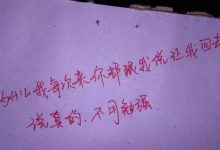 为什么我每次来你都跟我说让我回去
说真的.不用勉强